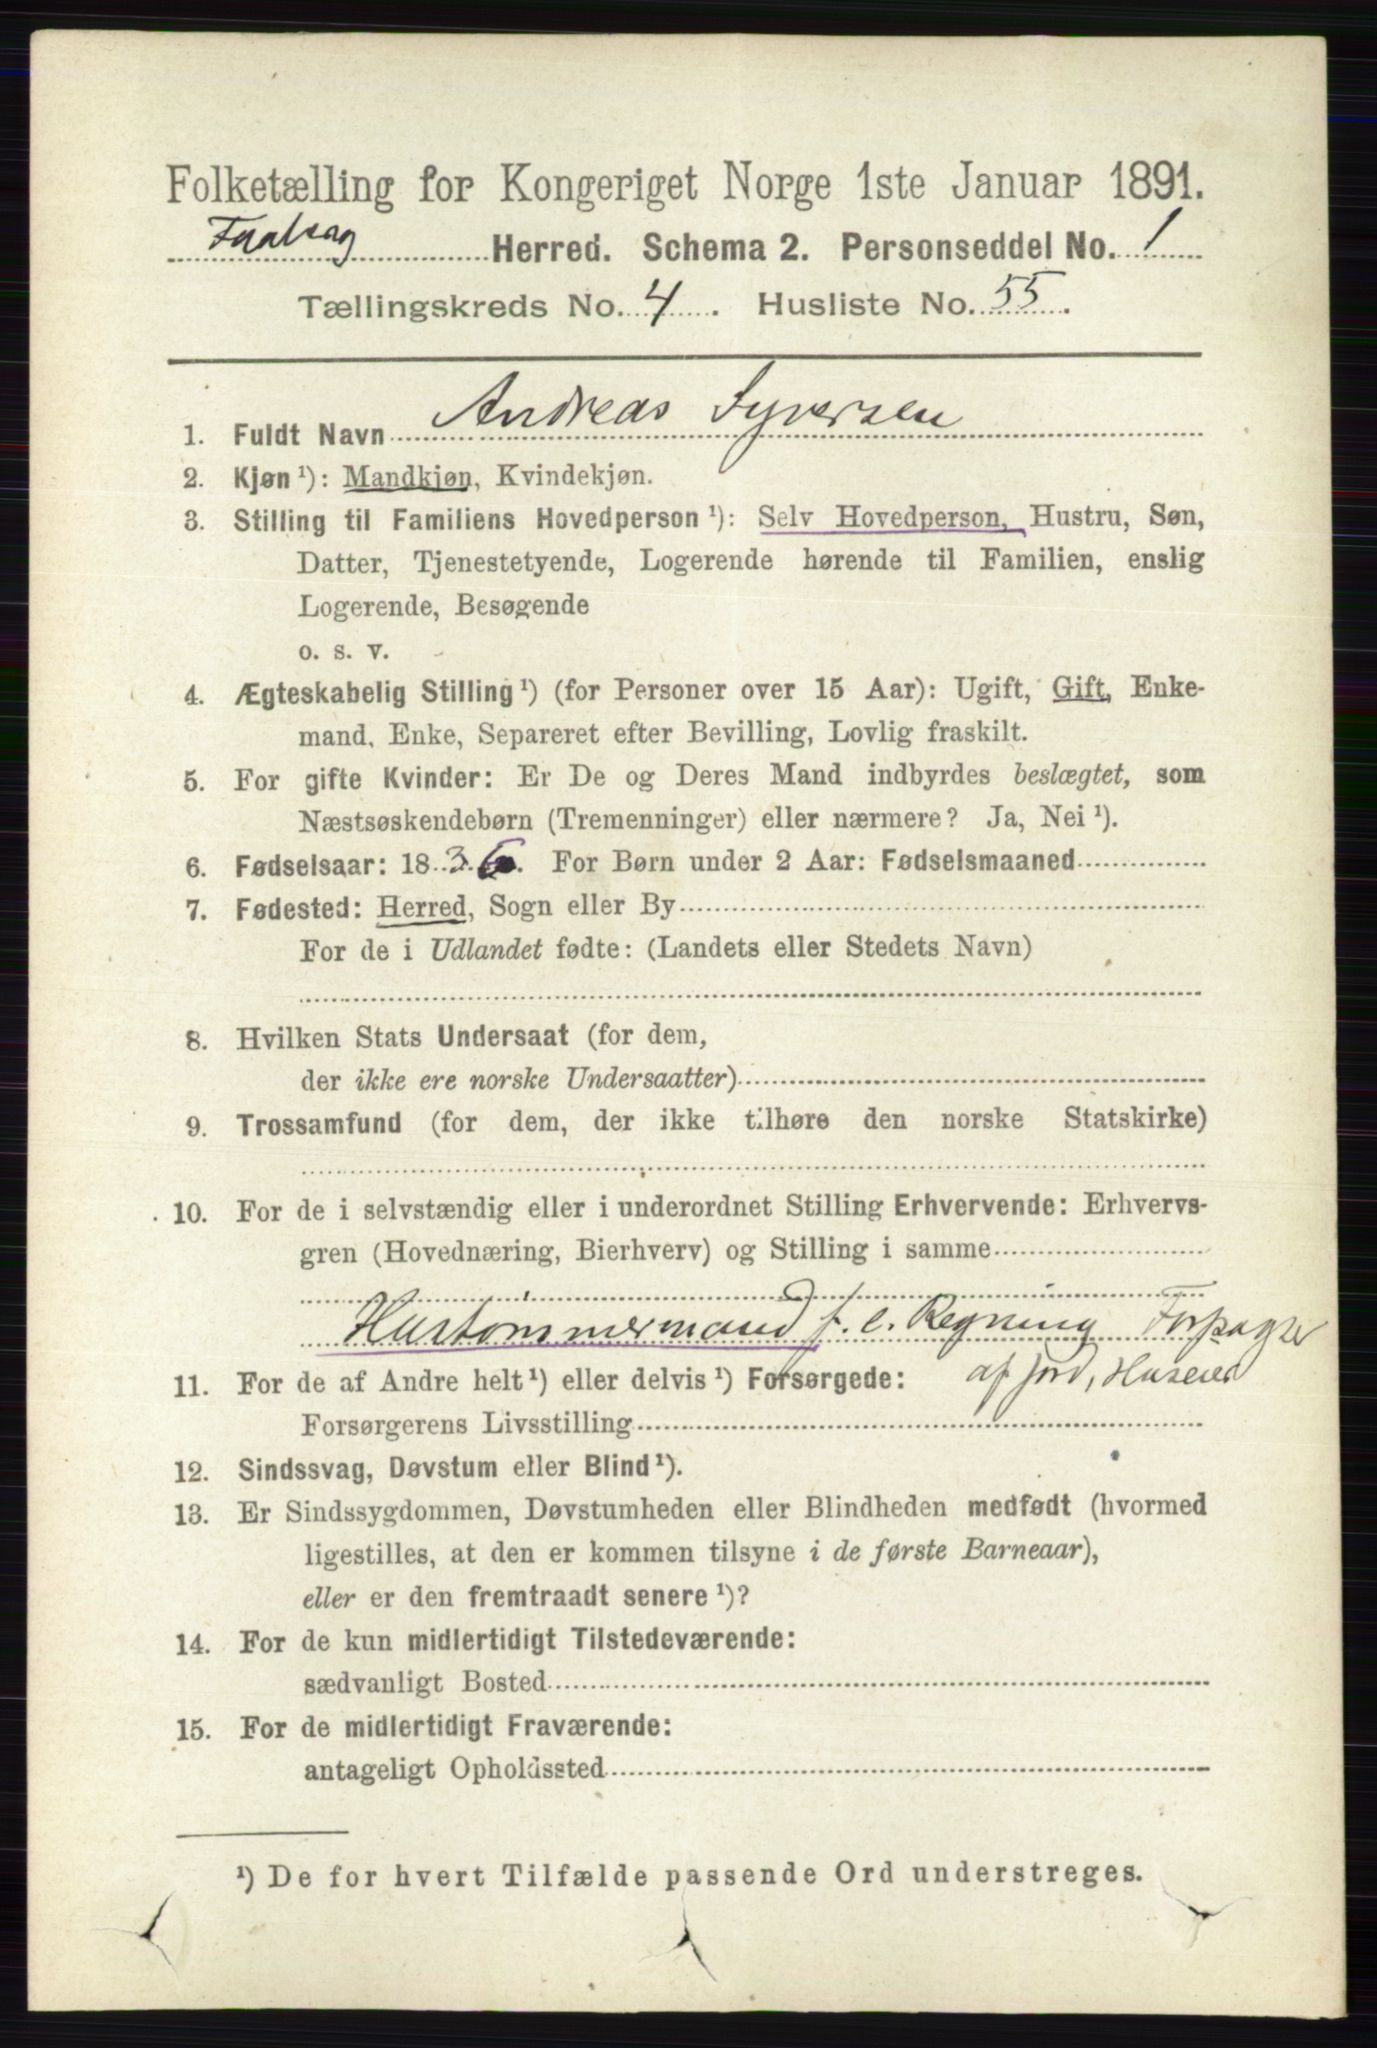 Folketælling for Kongeriget Norge 1ste Januar 1891.
Faaberg Herred. Schema 2. Personseddel No. 1
Tællingskreds No. 4. Husliste No. 55.
1. Fuldt Navn Andreas Syversen
2. Kjøn ¹): Mandkjøn, Kvindekjøn.
3. Stilling til Familiens Hovedperson ¹): Selv Hovedperson, Hustru, Søn,
Datter, Tjenestetyende, Logerende hørende til Familien, enslig
Logerende, Besøgende
o. s. v.
4. Ægteskabelig Stilling ¹) (for Personer over 15 Aar): Ugift, Gift, Enke-
mand, Enke, Separeret efter Bevilling, Lovlig fraskilt.
5. For gifte Kvinder: Er De og Deres Mand indbyrdes beslægtet, som
Næstsøskendebørn (Tremenninger) eller nærmere? Ja, Nei ¹).
6. Fødselsaar: 1836. For Børn under 2 Aar: Fødselsmaaned
7. Fødested: Herred, Sogn eller By
For de i Udlandet fødte: (Landets eller Stedets Navn)
8. Hvilken Stats Undersaat (for dem,
der ikke ere norske Undersaatter)
9. Trossamfund (for dem, der ikke tilhøre den norske Statskirke)
10. For de i selvstændig eller i underordnet Stilling Erhvervende: Erhvervs-
gren (Hovednæring, Bierhverv) og Stilling i samme
Hustømmermand f. e. Regning Forpagter
af jord, Huseier
11. For de af Andre helt ¹) eller delvis ¹) Forsørgede:
Forsørgerens Livsstilling
12. Sindssvag, Døvstum eller Blind ¹).
13. Er Sindssygdommen, Døvstumheden eller Blindheden medfødt (hvormed
ligestilles, at den er kommen tilsyne i de første Barneaar),
eller er den fremtraadt senere ¹)?
14. For de kun midlertidigt Tilstedeværende:
sædvanligt Bosted
15. For de midlertidigt Fraværende:
antageligt Opholdssted
¹) De for hvert Tilfælde passende Ord understreges.